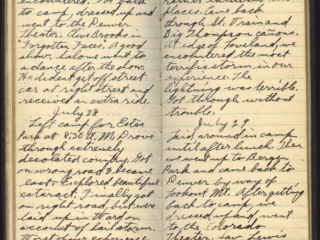 to camp, dressed up and
went to the Denver
Theater, Clive Brooks in
Forgotten Faces. A good
show. Salome went to
a dance after the show.
He didn't get off street
car at right street and
received an extra ride.
July 28
Left camp for Estes
Park at 8:30 A.M. Drove
through extremely
desolated country. Got
on wrong road & became
lost. Explored beautiful
cataract. Finally got
on right road, but were
laid up in Ward on
account of hailstorm.
Worst of our experience
place. Came back
through St. Vrain and
Big Thompson cañons.
At edge of Loveland, we
encountered the most
terrific storm in our
experience. The
lightning was terrible.
Got through without
trouble!
July 29
Laid around in camp
until after lunch. Then
we went up to Bergen
Park and came back to
Denver by way of
Lookout Mt. After getting
back to camp, we
dressed up and went
to the Colorado
Theater, saw Lewis